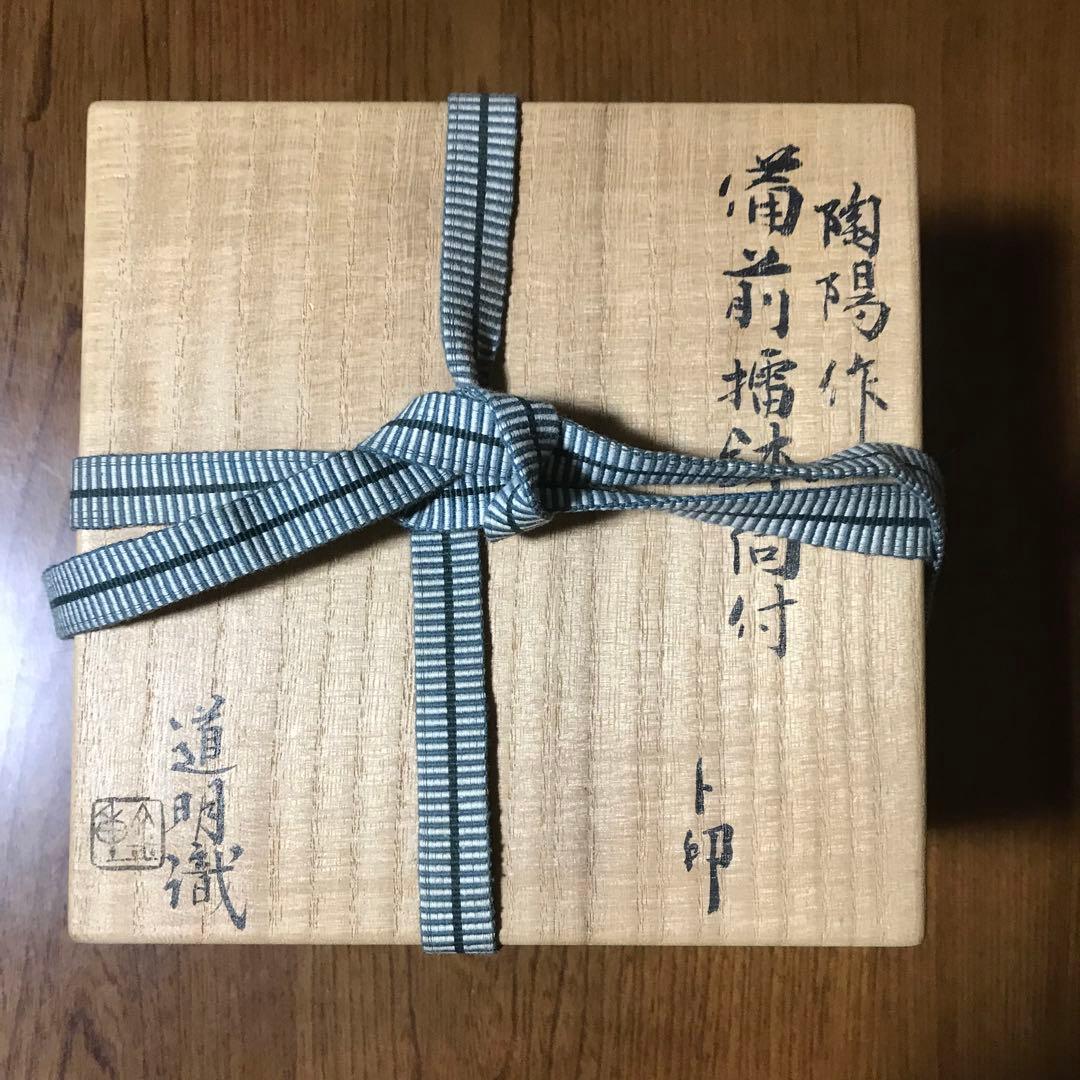 陶陽作
備前擂鉢向付
卜印
道明識